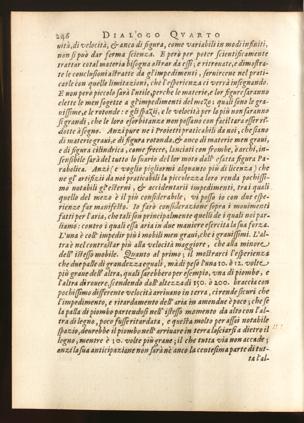 246 DIALOGO QVARTO
uità, di velocità, & anco di figura, come variabili in modi infiniti,
non si può dar ferma scienza. E però per poter scientificamente
trattar cotal materia bisogna astrar da essi, e ritrouate, e dimostra-
te le conclusioni astratte da gl'impedimenti, seruircene nel prati-
carle con quelle limitazioni, che l'esperienza ci verrà insegnando.
E non però piccolo sarà l'utile, perche le materie, e lor figure saranno
elette le men soggette a gl'impedimenti del mezo; quali sono le gra-
uissime, e le rotonde: e gli spazii, e le velocità per lo più non saranno
sì grandi, che le loro esorbitanze non possano con facil tara esser ri-
dotte à segno. Anzi pure ne i Proietti praticabili da noi, che siano
di materie graui, e di figura rotonda, & anco di materie men graui,
e di figura cilindrica, come frecce, lanciati con frombe, ò archi, in-
sensibile sarà del tutto lo suario del lor moto dall'esatta figura Pa-
rabolica. Anzi (e voglio pigliarmi alquanto più di licenza) che
ne gl'artifizii da noi praticabili la piccolezza loro renda pochissi-
mo notabili gl'esterni, & accidentarii impedimenti, tra i quali
quello del mezo è il più considerabile, vi posso io con due espe-
rienze far manifesto. Io farò considerazione sopra i mouimenti
fatti per l'aria, che tali son principalmente quelli de i quali noi par-
liamo: contro i quali essa aria in due maniere esercita la sua forza.
L'una è coll'impedir più i mobili men graui, che i grauissimi. L'al-
tra è nel contrastar più alla velocità maggiore, che alla minore
dell'istesso mobile. Quanto al primo; il mostrarci l'esperienza
che due palle di grandezza eguali, mà di peso l'una 10. ò 12. volte
più graue dell'altra, quali sarebbero per esempio, vna di piombo, e
l'altra di rouere, scendendo dall'altezza di 150. ò 200. braccia con
pochissimo differente velocità arriuano in terra, ci rende sicuri che
l'impedimento, e ritardamento dell'aria in amendue è poco; che se
la palla di piombo partendosi nell'istesso momento da alto con l'al-
tra di legno, poco fusse ritardata, e questa molto per assai notabile
spazio, dourebbe il piombo nell'arriuare in terra lasciarsi a dietro il
legno, mentre è 10. volte più graue; il che tutta via non accade;
anzi la sua anticipazione non sarà nè anco la centesima parte di tut-
ta l'al-